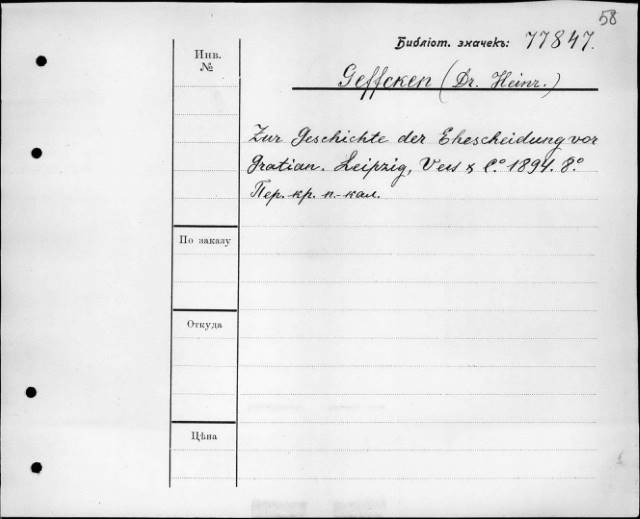 58
Библіот. значекъ: 77847.
Инв.
№
Geffcken (Dr. Heinr.)
Zur Geschichte der Ehescheidung vor
Gratian. Leipzig, Veit & C.° 1894. 8.°
Пер. кр. п.-кал.
По заказу
Откуда
Цѣна